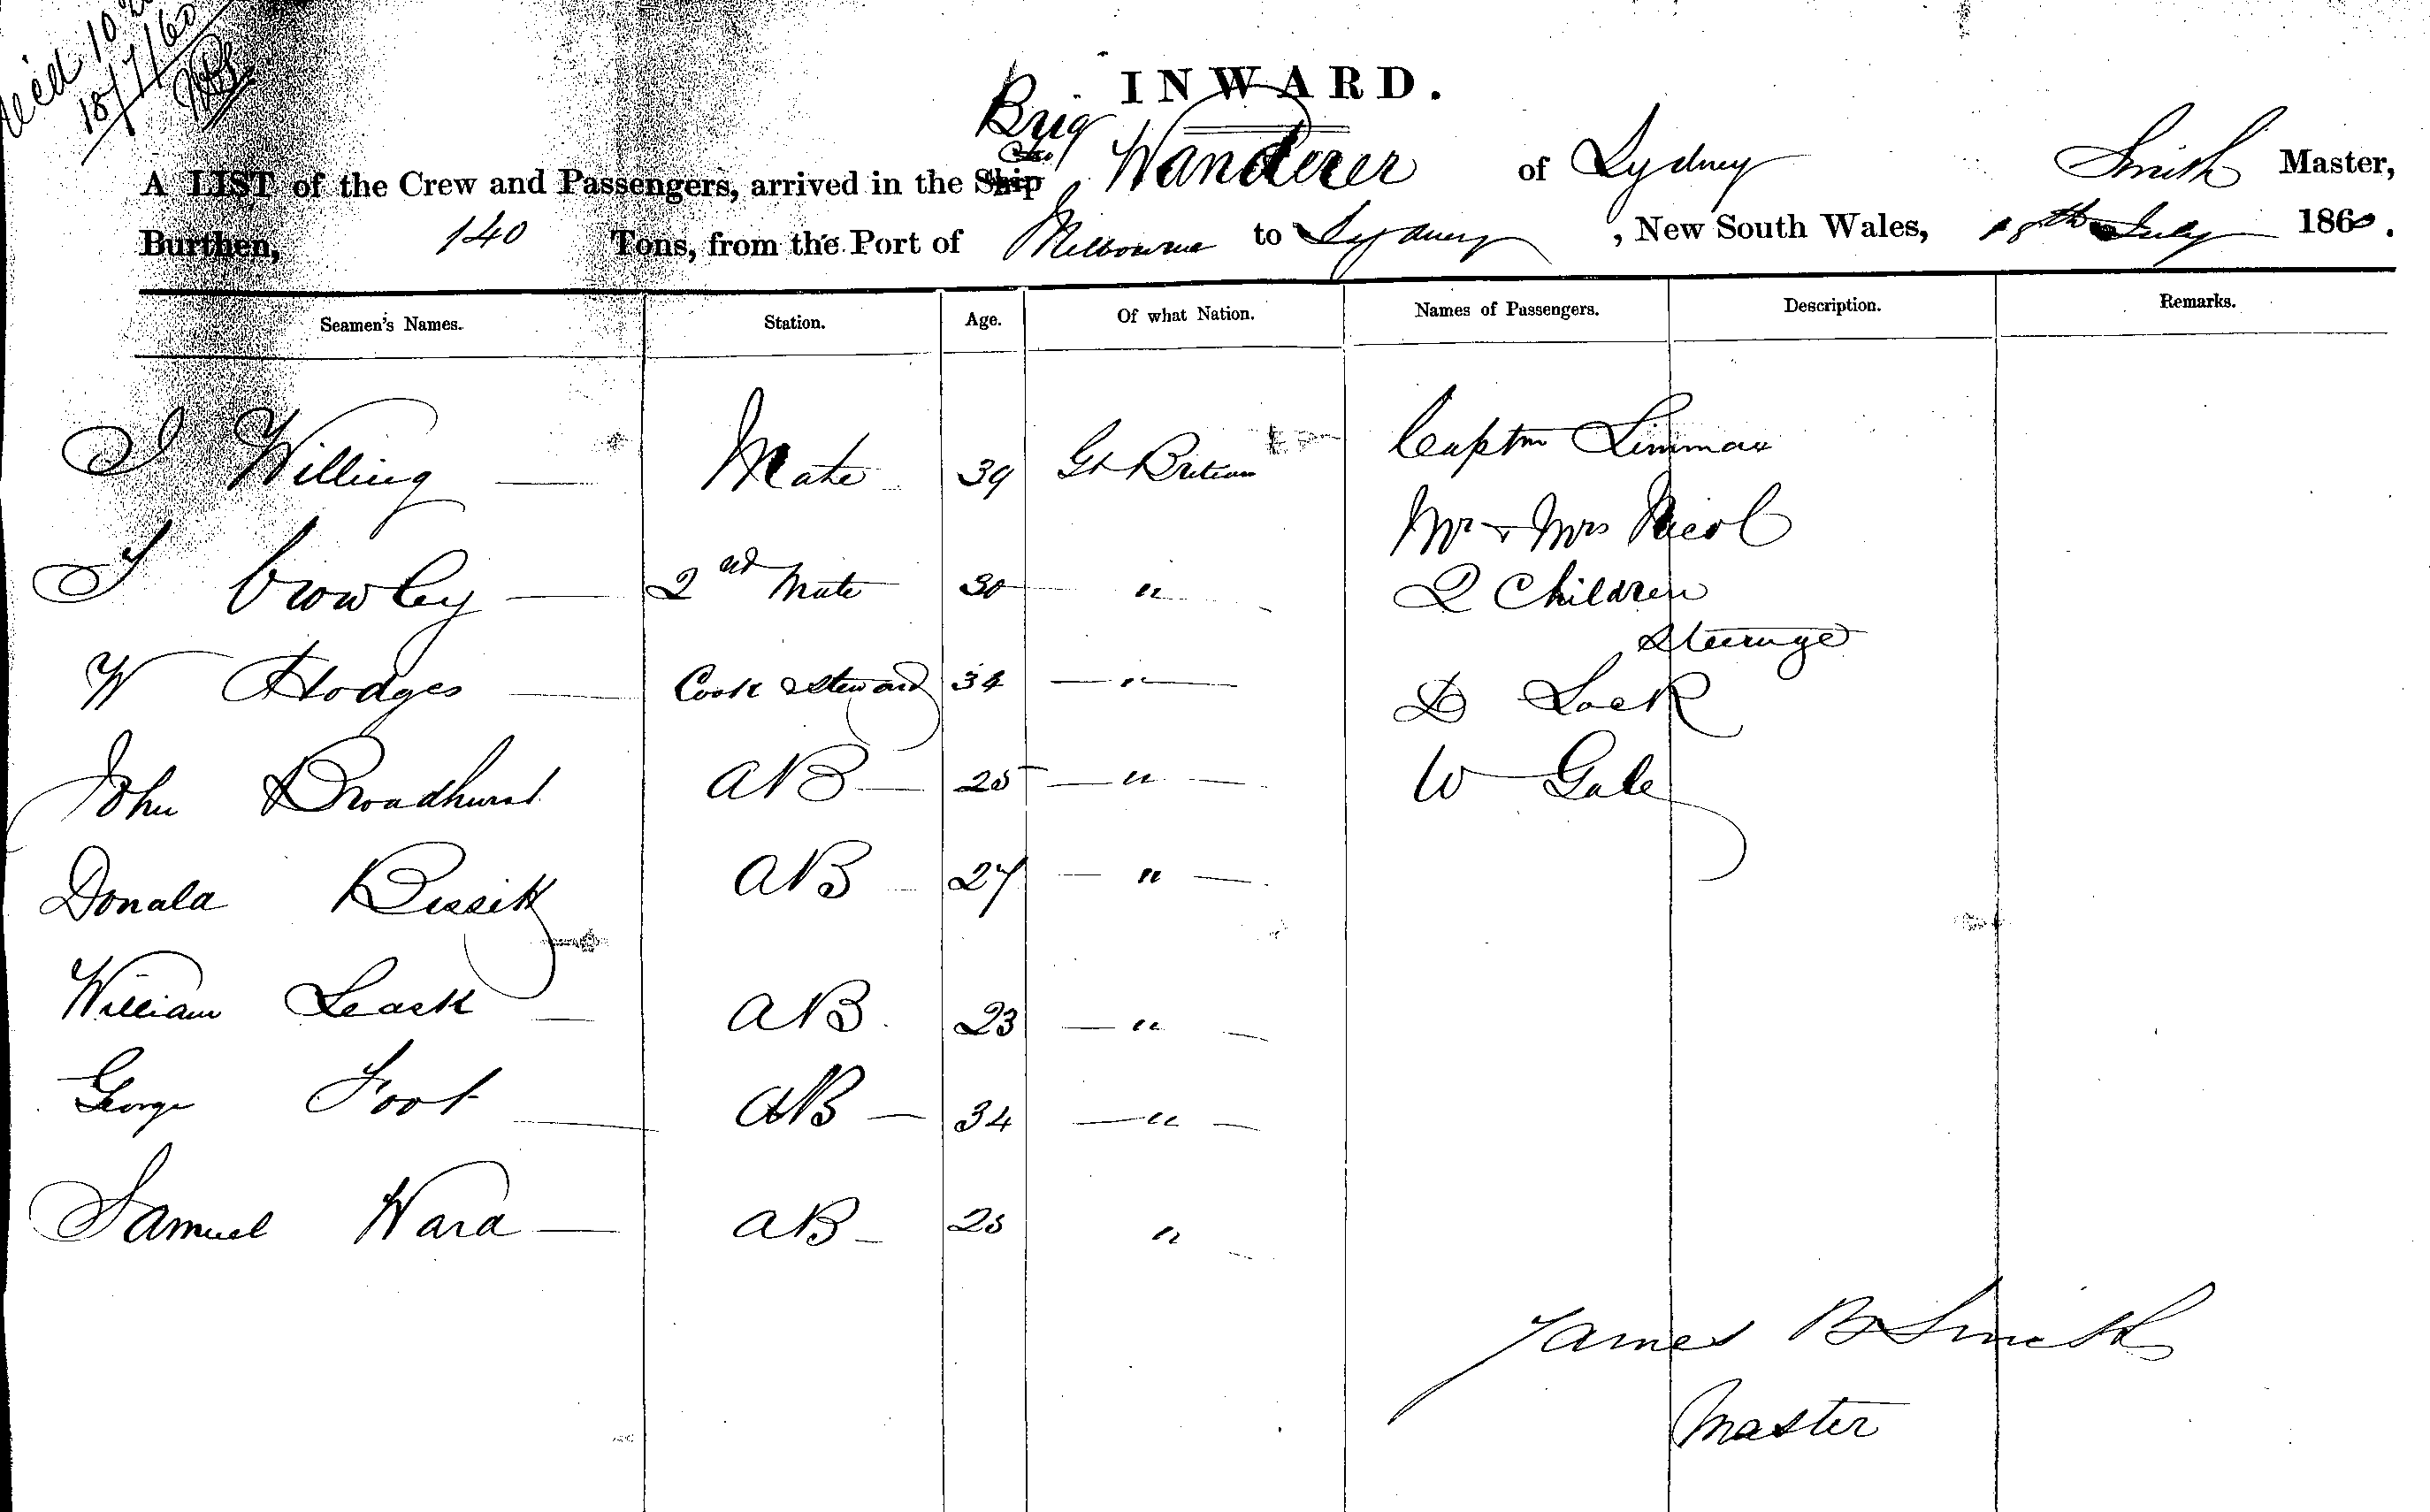 18/7/60
INWARD.
Brig
A LIST of the Crew and Passengers, arrived in the Ship Wanderer of Sydney Smith Master,
Burthen, 140 Tons, from the Port of Melbourne to Sydney, New South Wales, 18th July 1860.
Seamen's Names. Station. Age. Of what Nation. Names of Passengers. Description. Remarks.
Willing — Mate 39 Gt Britian Captn
Mr & Mrs Nicol
Crowley — 2nd Mate 30 "
2 Children
Steerage
W Hodges — Cook & Steward 34 — " — D Lock
John Broadhurst AB — 25 — " — W Gale
Donald AB 27 — " —
William Leask — AB 23 — " —
George Foot — AB — 34 — " —
Samuel Ward — AB — 25 "
James B Smith
Master